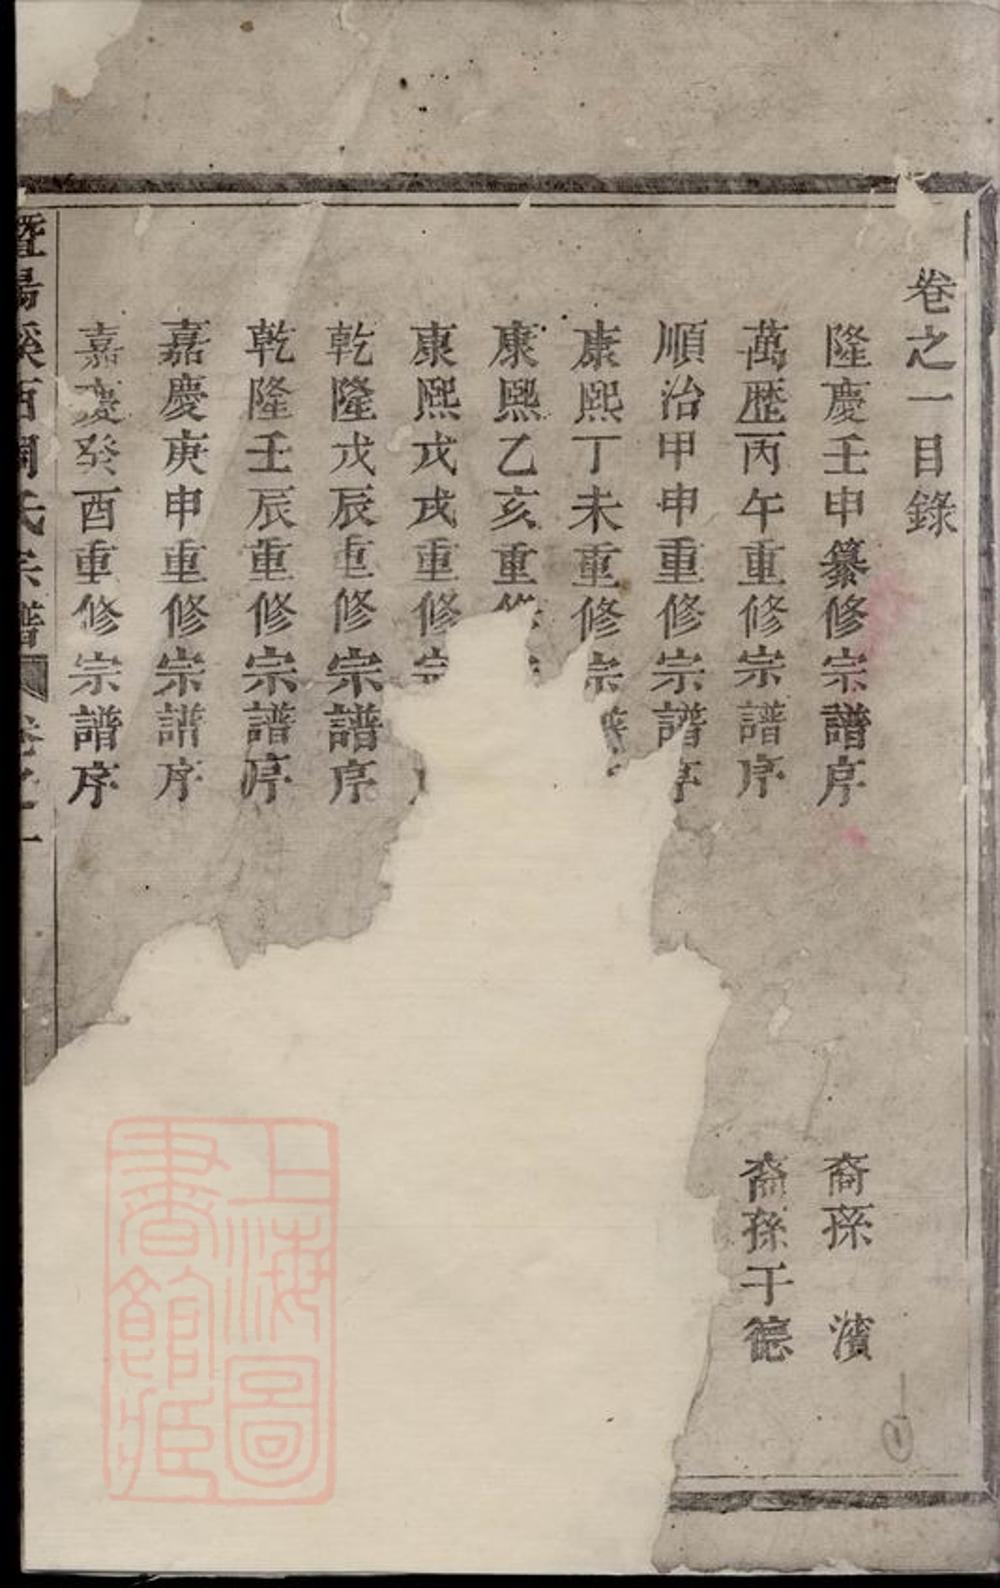 卷之一目錄
隆慶壬申纂修宗譜序 裔孫 濱
萬歷丙午重修宗譜序 裔孫于德
順治甲申重修宗譜序
康熙丁未重修宗譜
康熙乙亥重修
康熙戊戌重修宗
乾隆戊辰重修宗譜序
乾隆壬辰重修宗譜序
嘉慶庚申重修宗譜序
嘉慶癸酉重修宗譜序
暨陽溪西周氏宗譜 卷之一
上海圖書館藏